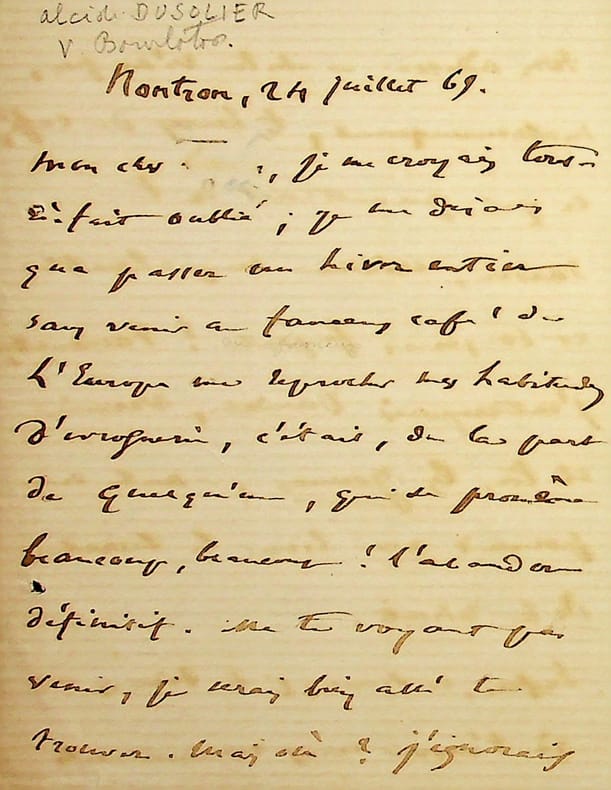 alcide DUSOLIER
v. Bourloton.
Nontron, 24 juillet 69.
mon cher , je me croyais tout-
à-fait oublié ; je me disais
que passer un hiver entier
sans venir au fameux café de
L'Europe me reprocher mes habitudes
d'ivrognerie, c'était, de la part
de quelqu'un, qui se promène
beaucoup, beaucoup ! l'abandon
définitif. Ne te voyant pas
venir, je serais bien allé te
trouver. Mais où ? j'ignorais